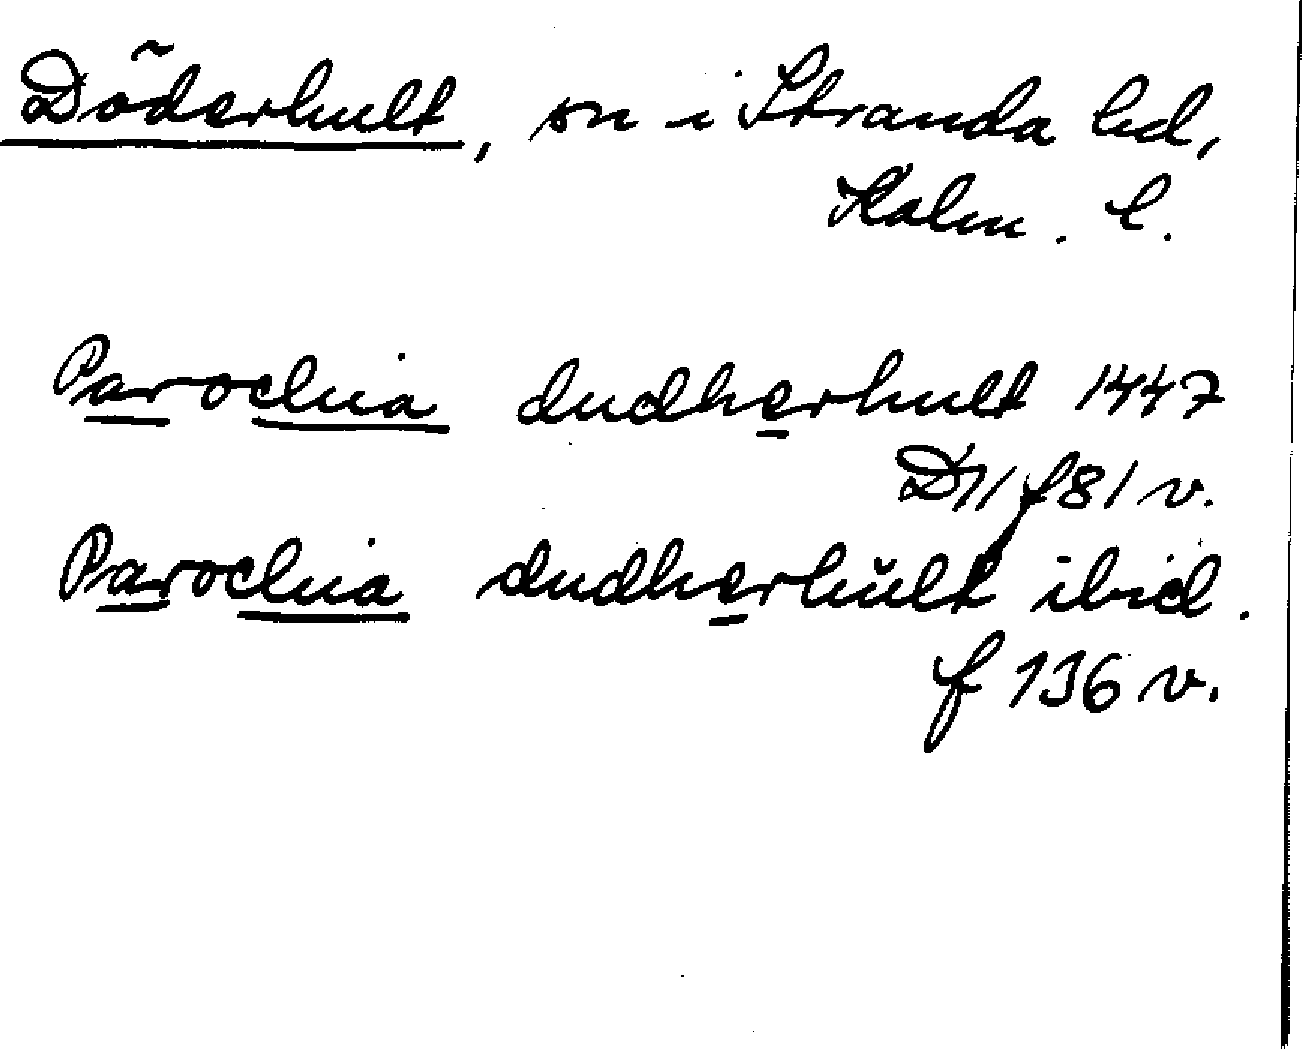 Döderhult, sn i Stranda hd,
Kalm. l.
Parochia dudherhult 1447
D11 f 81 v.
Parochia dudherhŭlt ibid.
f 136 v.